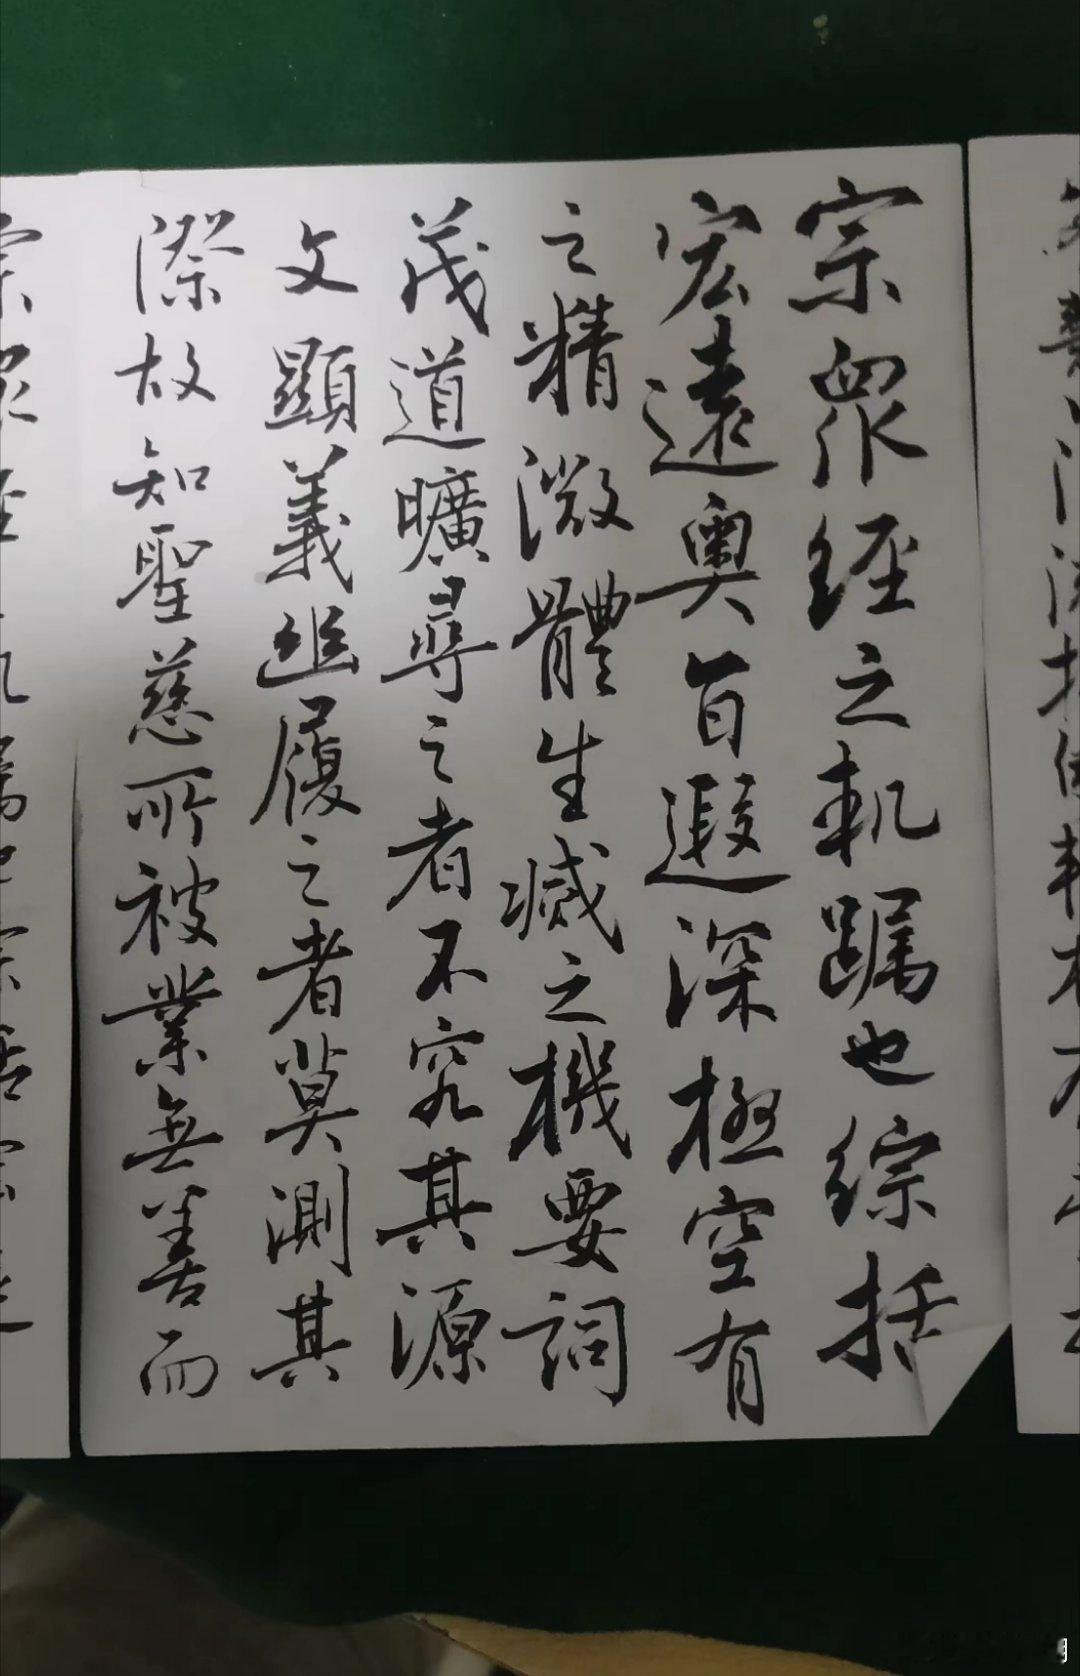 宗衆經之軌躅也綜括
宏遠奧旨遐深極空有
之精微體生滅之機要詞
茂道曠尋之者不究其源
文顯義幽履之者莫測其
際故知聖慈所被業無善而